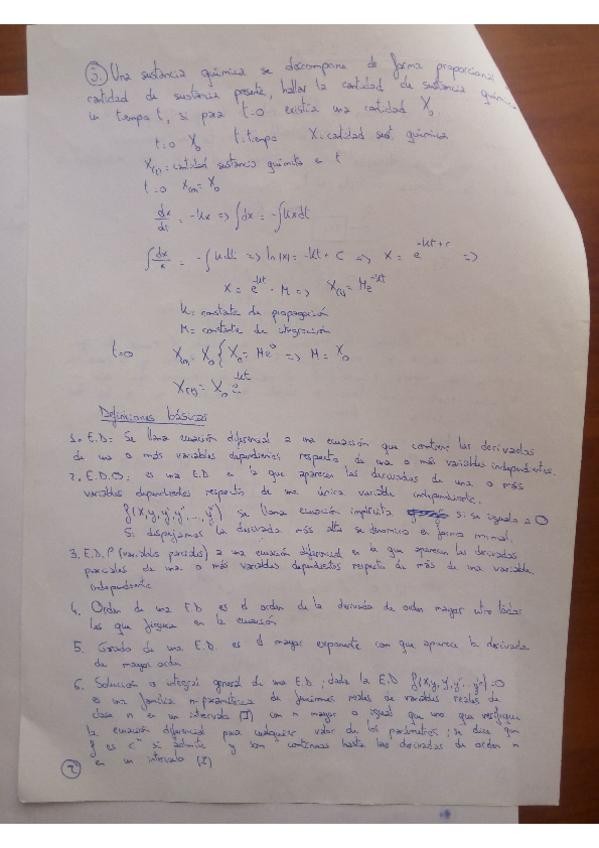 3. Una sustancia química se descompone de forma proporcional
cantidad de sustancia presente, hallar la cantidad de sustancia química
un tiempo t, si para t=0 existía una cantidad X₀.
t=0 X₀ t=tiempo X=cantidad sust. química
X(t)=cantidad sustancia química e t
t=0 X(0)=X₀
dx/dt = -Kx => ∫dx = -∫Kxdt
∫dx/x = -∫Kdt => ln|x| = -Kt + C => X = e^(-Kt+c) =>
X = e^(-Kt) · M => X(t) = Me^(-Kt)
K= constante de propagación
M= constante de integración
t=0 X(0)=X₀ { X₀ = Me⁰ => M = X₀
X(t) = X₀ e^(-Kt)
Definiciones básicas
1. E.D= Se llama ecuación diferencial a una ecuación que contiene las derivadas
de una o más variables dependientes respecto de una o más variables independientes.
2. E.D.O: es una E.D en la que aparecen las derivadas de una o más
variables dependientes respecto de una única variable independiente.
f(x,y,y',y'',...,yⁿ) se llama ecuación implícita si se iguala a 0
Si despejamos la derivada más alta se denomina en forma normal.
3. E.D.P (variables parciales) a una ecuación diferencial en la que aparecen las derivadas
parciales de una o más variables dependientes respecto de más de una variable
independiente
4. Orden de una E.D es el orden de la derivada de orden mayor entre todas
las que figuran en la ecuación
5. Grado de una E.D. es el mayor exponente con que aparece la derivada
de mayor orden
6. Solución o integral general de una E.D: dada la E.D f(x,y,y',y''...yⁿ)=0
es una familia n-paramétrica de funciones reales de variables reales de
clase n en un intervalo (I) con n mayor o igual que uno que verifique
la ecuación diferencial para cualquier valor de los parámetros; se dice que
f es cⁿ si admite y son continuas hasta las derivadas de orden n
en un intervalo (I)
2